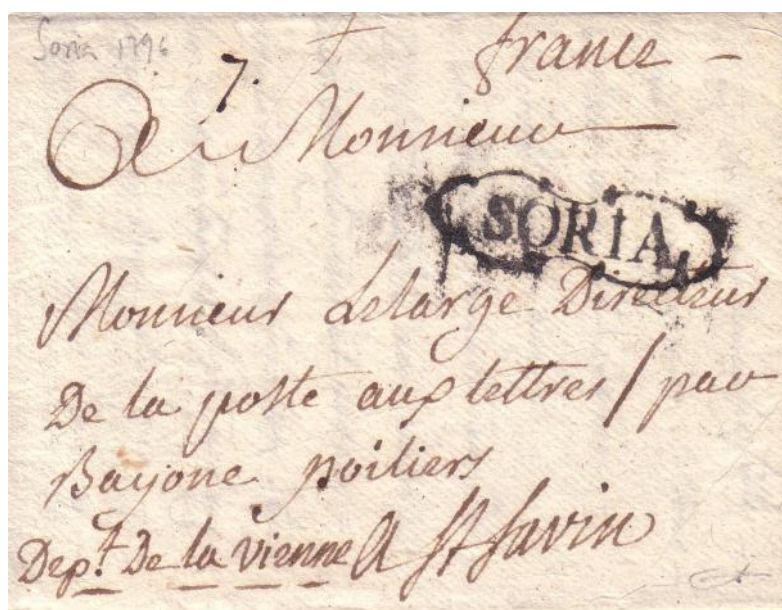 Soria 1796
france -
7.
A Monsieur
SORIA
Monsieur Lelarge Directeur
De la poste aux lettres / par
Bayone poitiers
Dept. De la vienne A St Savin